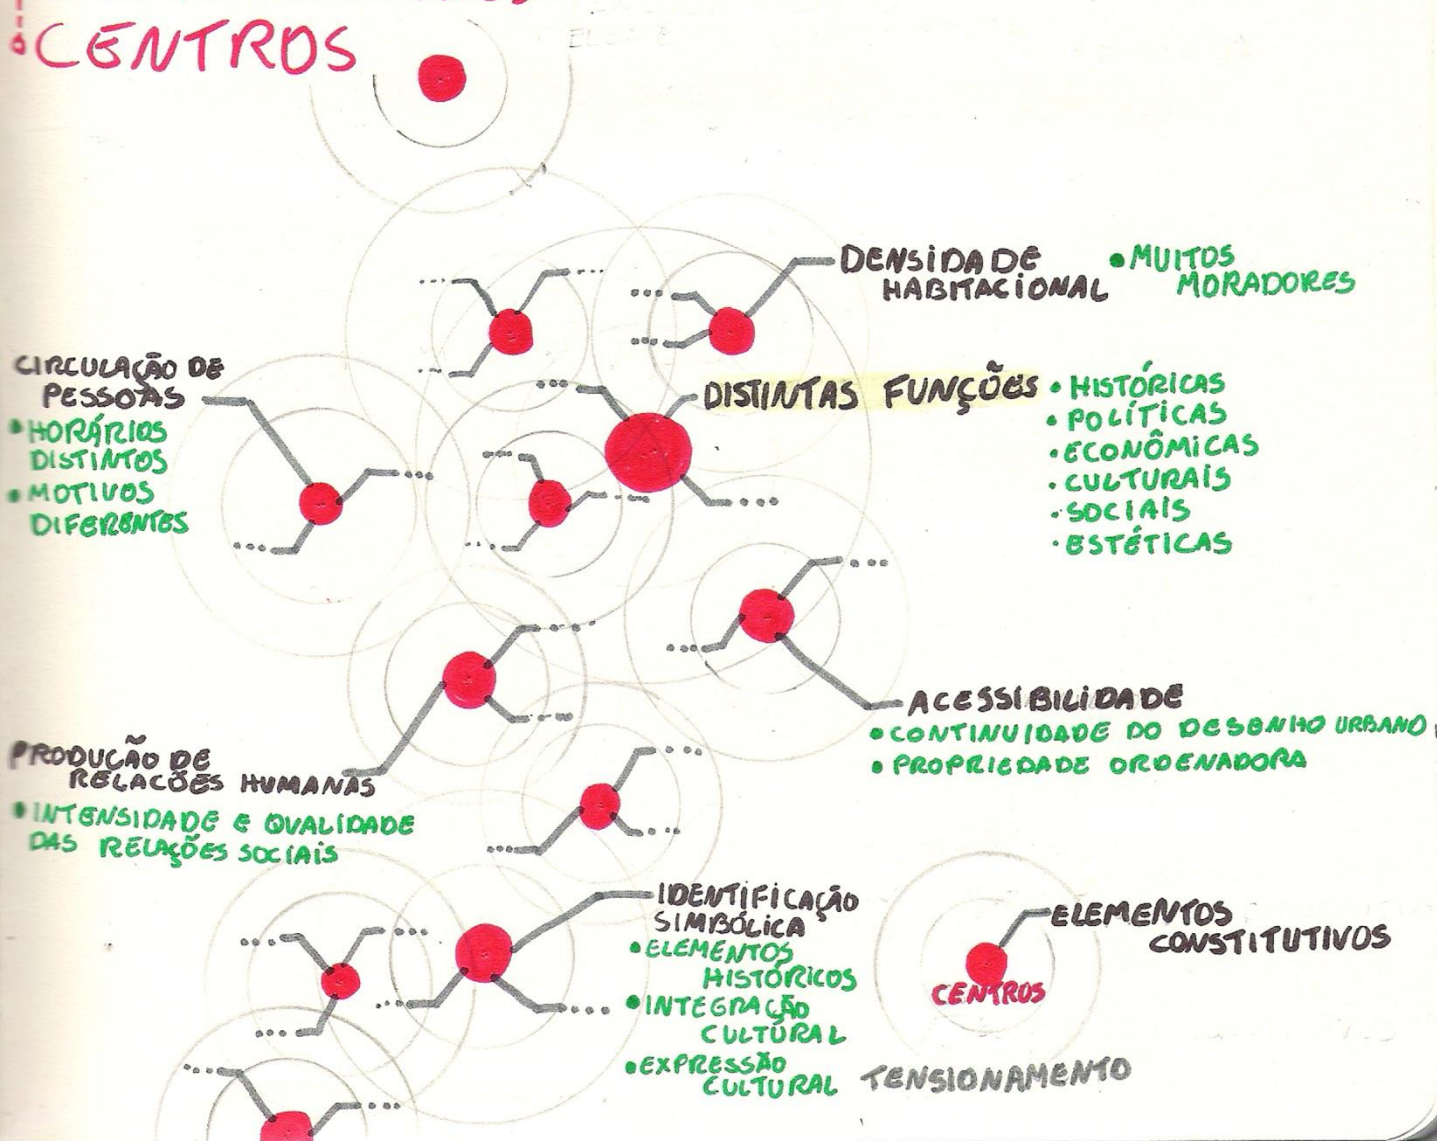 CENTROS
DENSIDADE
HABITACIONAL
• MUITOS
MORADORES
CIRCULAÇÃO DE
PESSOAS
• HORÁRIOS
DISTINTOS
• MOTIVOS
DIFERENTES
DISTINTAS FUNÇÕES
• HISTÓRICAS
• POLÍTICAS
• ECONÔMICAS
• CULTURAIS
• SOCIAIS
• ESTÉTICAS
ACESSIBILIDADE
• CONTINUIDADE DO DESENHO URBANO
• PROPRIEDADE ORDENADORA
PRODUCÃO DE
RELACÕES HUMANAS
• INTENSIDADE E QUALIDADE
DAS RELAÇÕES SOCIAIS
IDENTIFICAÇÃO
SIMBÓLICA
• ELEMENTOS
HISTÓRICOS
• INTEGRAÇÃO
CULTURAL
• EXPRESSÃO
CULTURAL
ELEMENTOS
CONSTITUTIVOS
CENTROS
TENSIONAMENTO